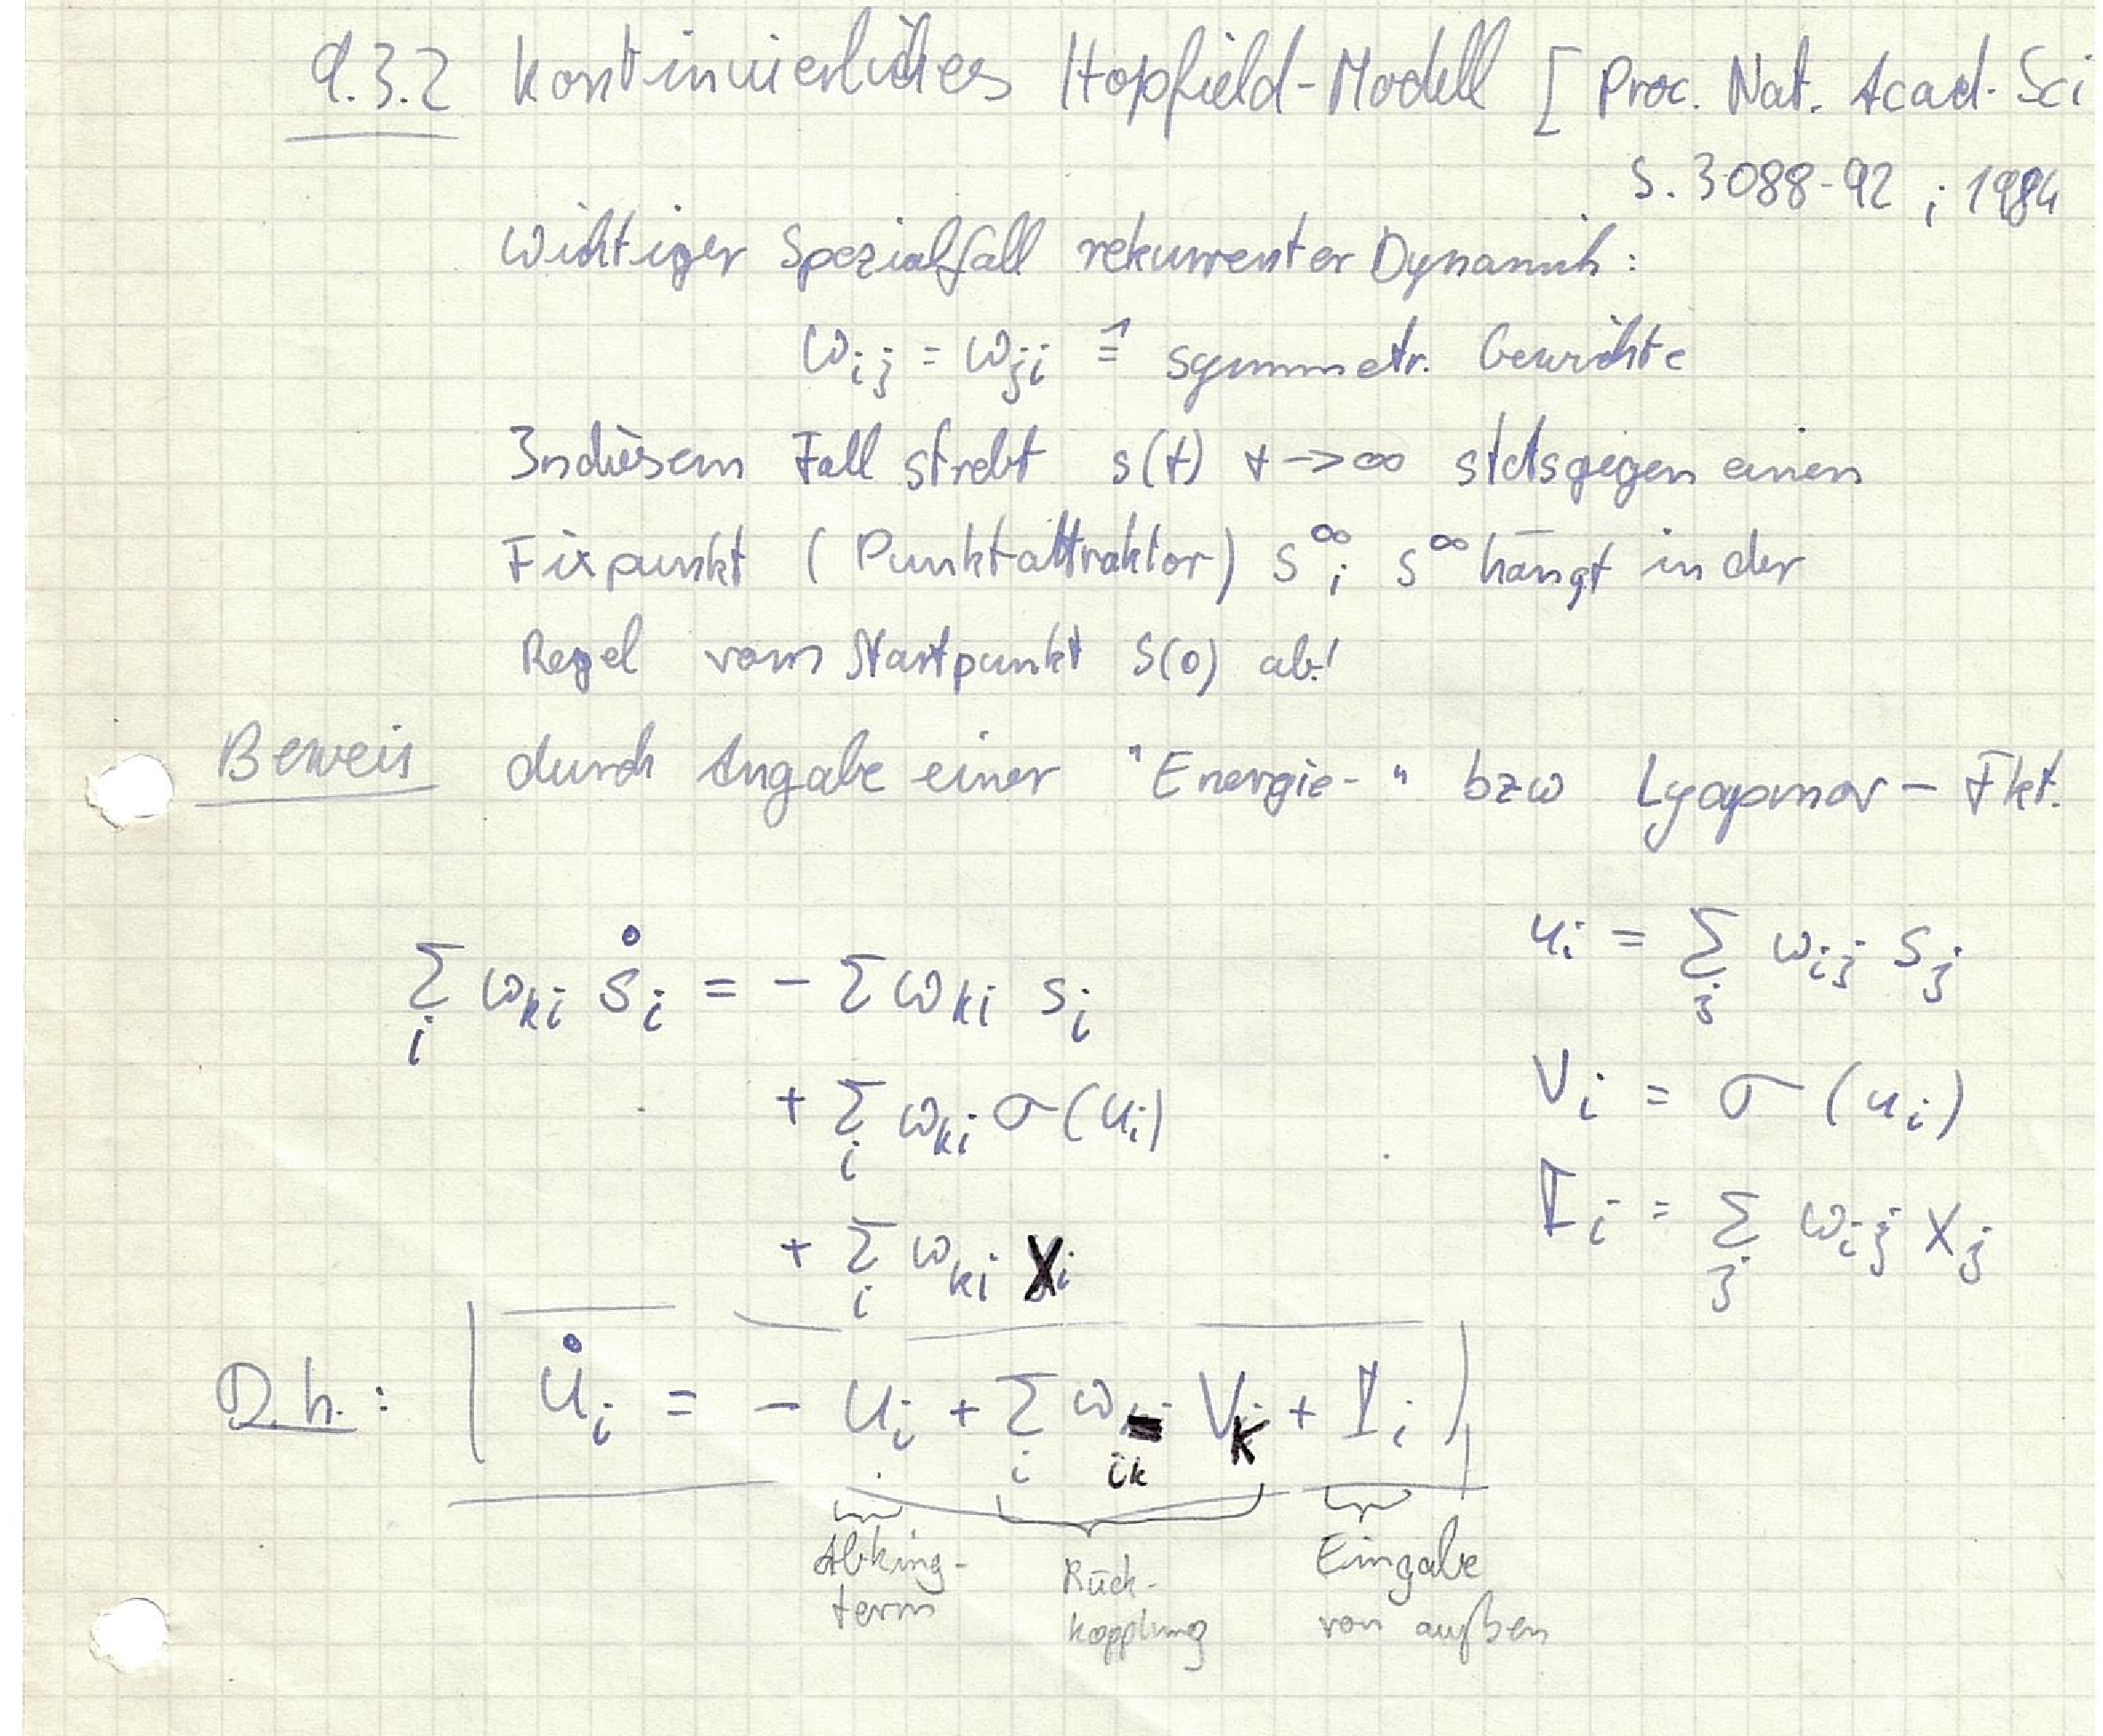 9.3.2 Kontinuierliches Hopfield-Modell [ Proc. Nat. Acad. Sci
S. 3088-92 ; 1984
Wichtiger Spezialfall rekurrenter Dynamik :
ω_ij = ω_ji ≙ symmetr. Gewichte
In diesem Fall strebt s(t) t → ∞ stets gegen einen
Fixpunkt ( Punktattraktor ) s^∞ ; s^∞ hängt in der
Regel vom Startpunkt S(0) ab!
Beweis durch Angabe einer "Energie-" bzw Lyapunov - Fkt.
Σ_i ω_ki ṡ_i = - Σ ω_ki s_i
+ Σ_i ω_ki σ(u_i)
+ Σ_i ω_ki X_i
u_i = Σ_j ω_ij s_j
V_i = σ (u_i)
I_i = Σ_j ω_ij X_j
D.h. : u̇_i = - u_i + Σ_i ω_ik V_k + I_i
Abkling-
term
Rück-
kopplung
Eingabe
von außen